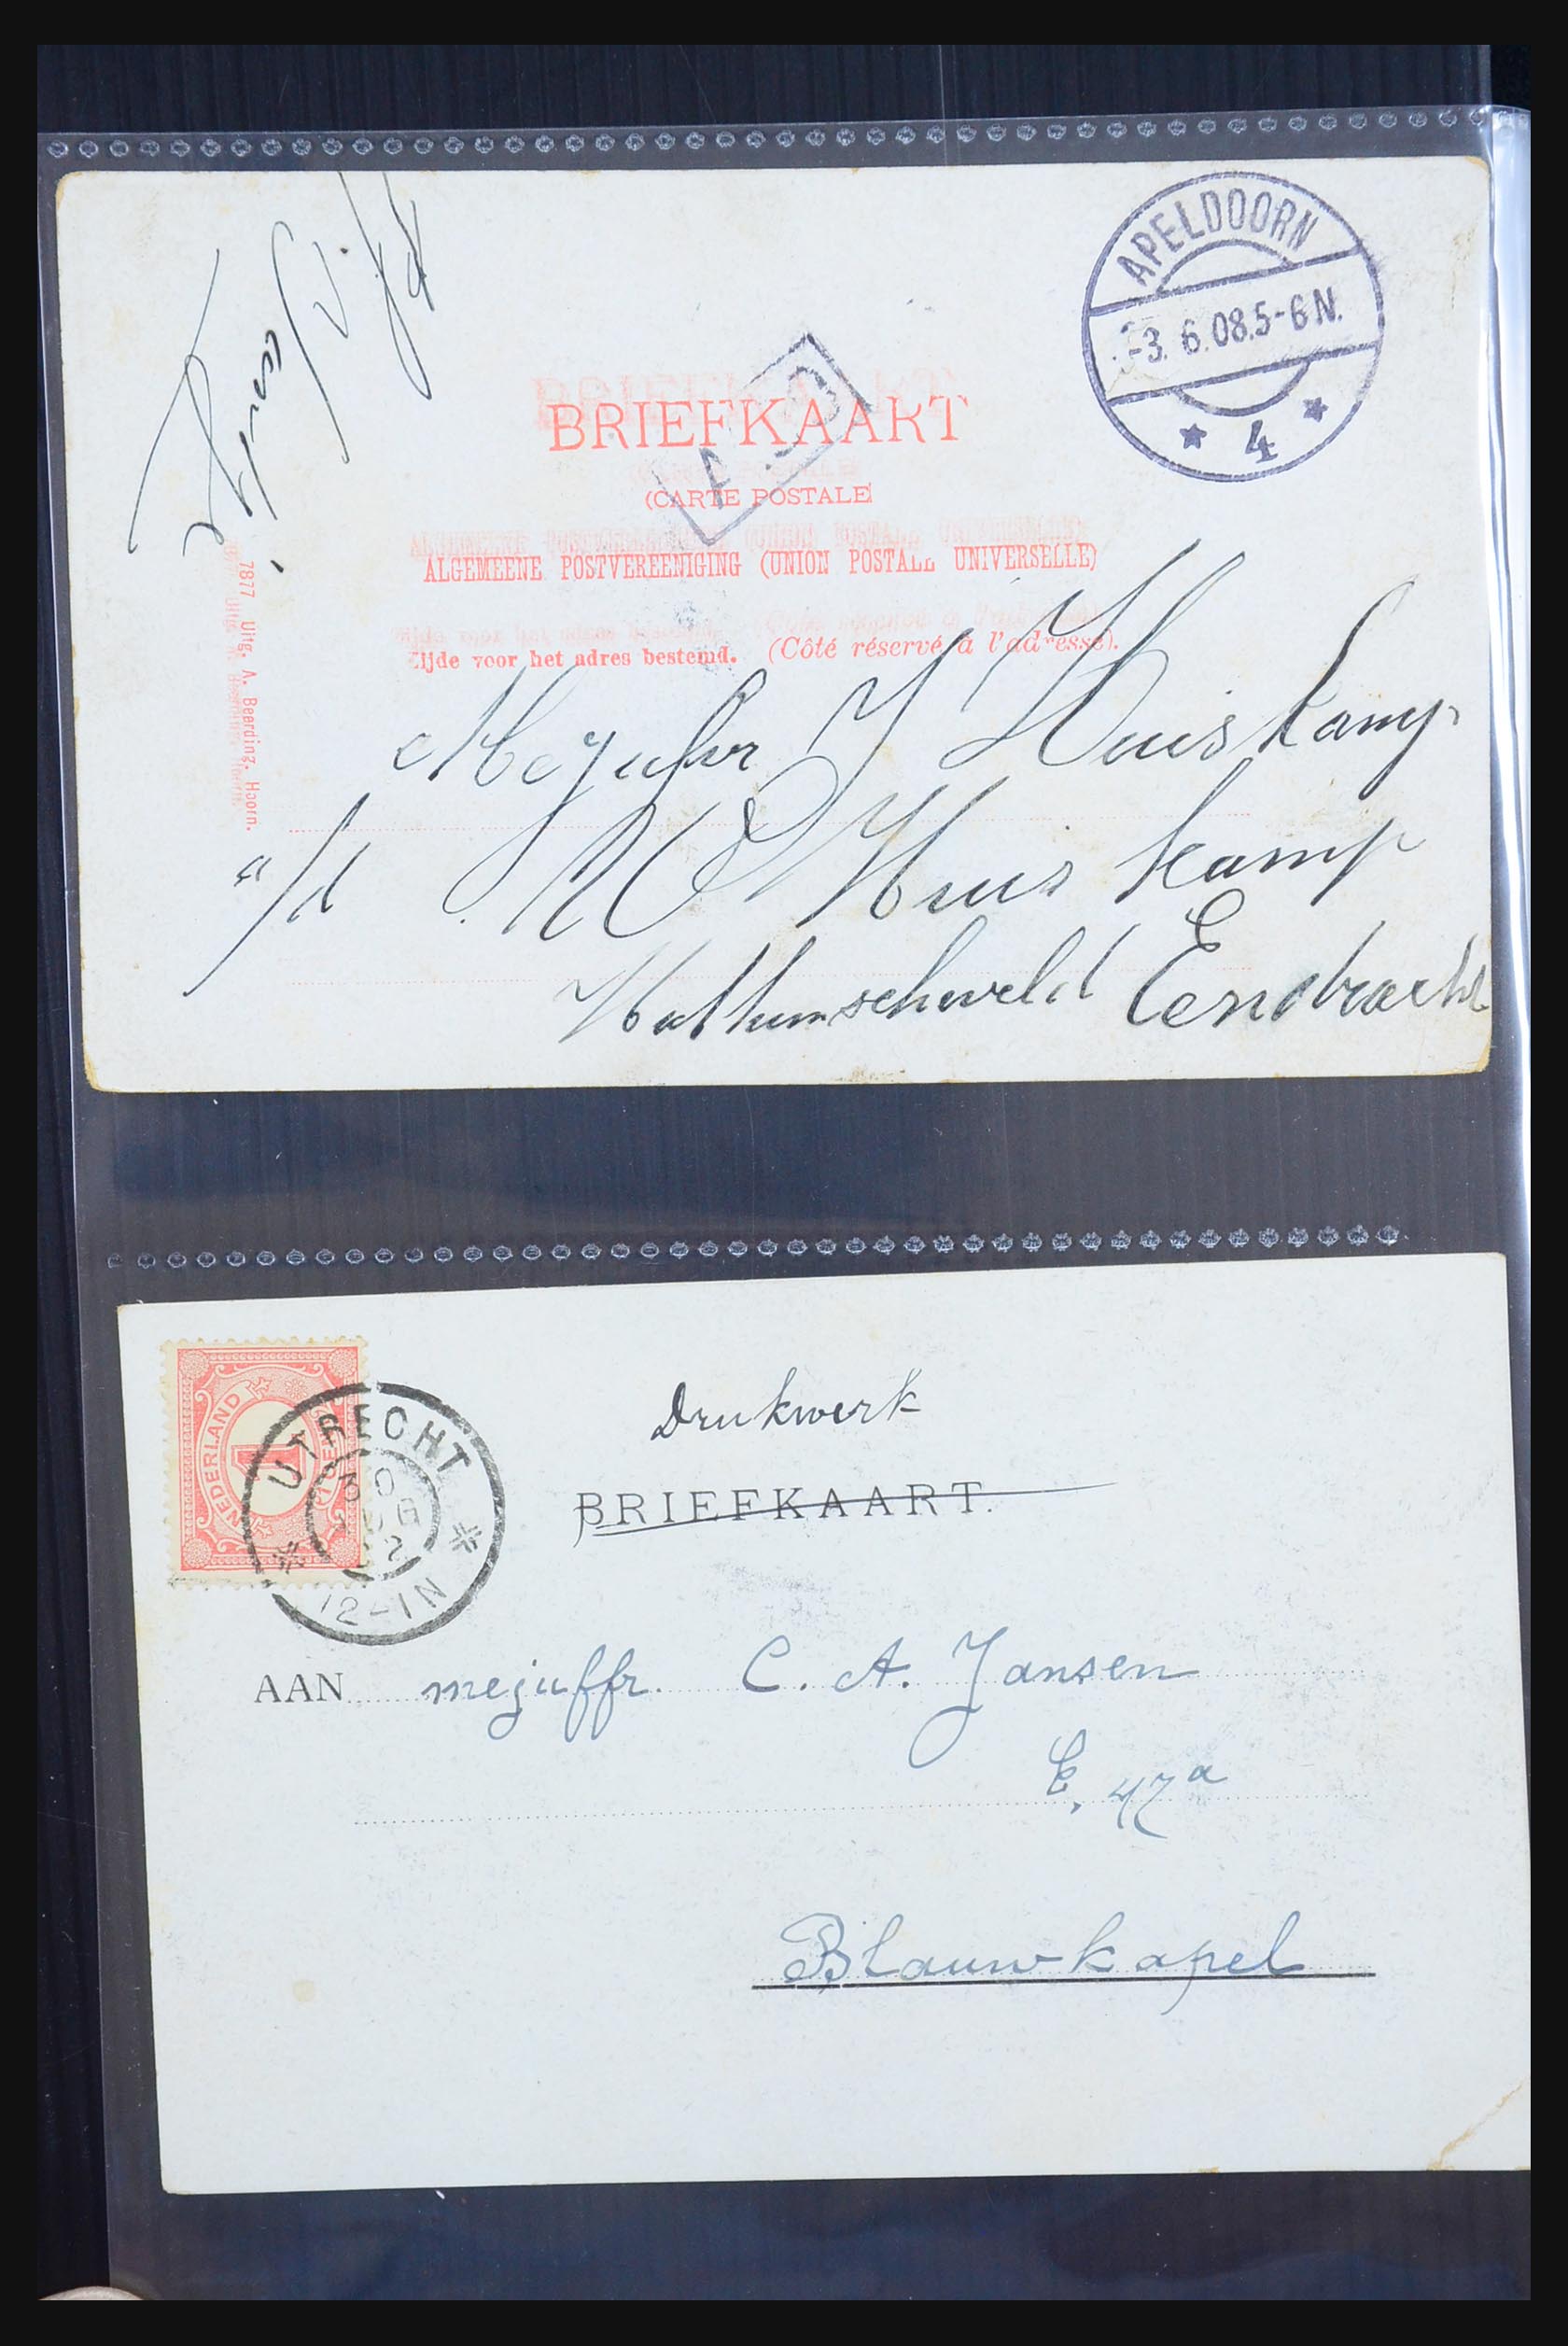 APELDOORN
-3. 6.08.5-6 N.
4
BRIEFKAART
(CARTE POSTALE)
ALGEMEENE POSTVEREENIGING (UNION POSTALE UNIVERSELLE)
Zijde voor het adres bestemd. (Côté réservé à l'adresse).
7877 Uitg. A. Beerding. Hoorn.
Mejuhr J Huiskamp
a/d Huiskamp
Hattemscheveld Eendracht
NEDERLAND
1
UTRECHT
30
12-1N
Drukwerk
BRIEFKAART.
AAN mejuffr. C. A. Jansen
E. 47a
Blauwkapel